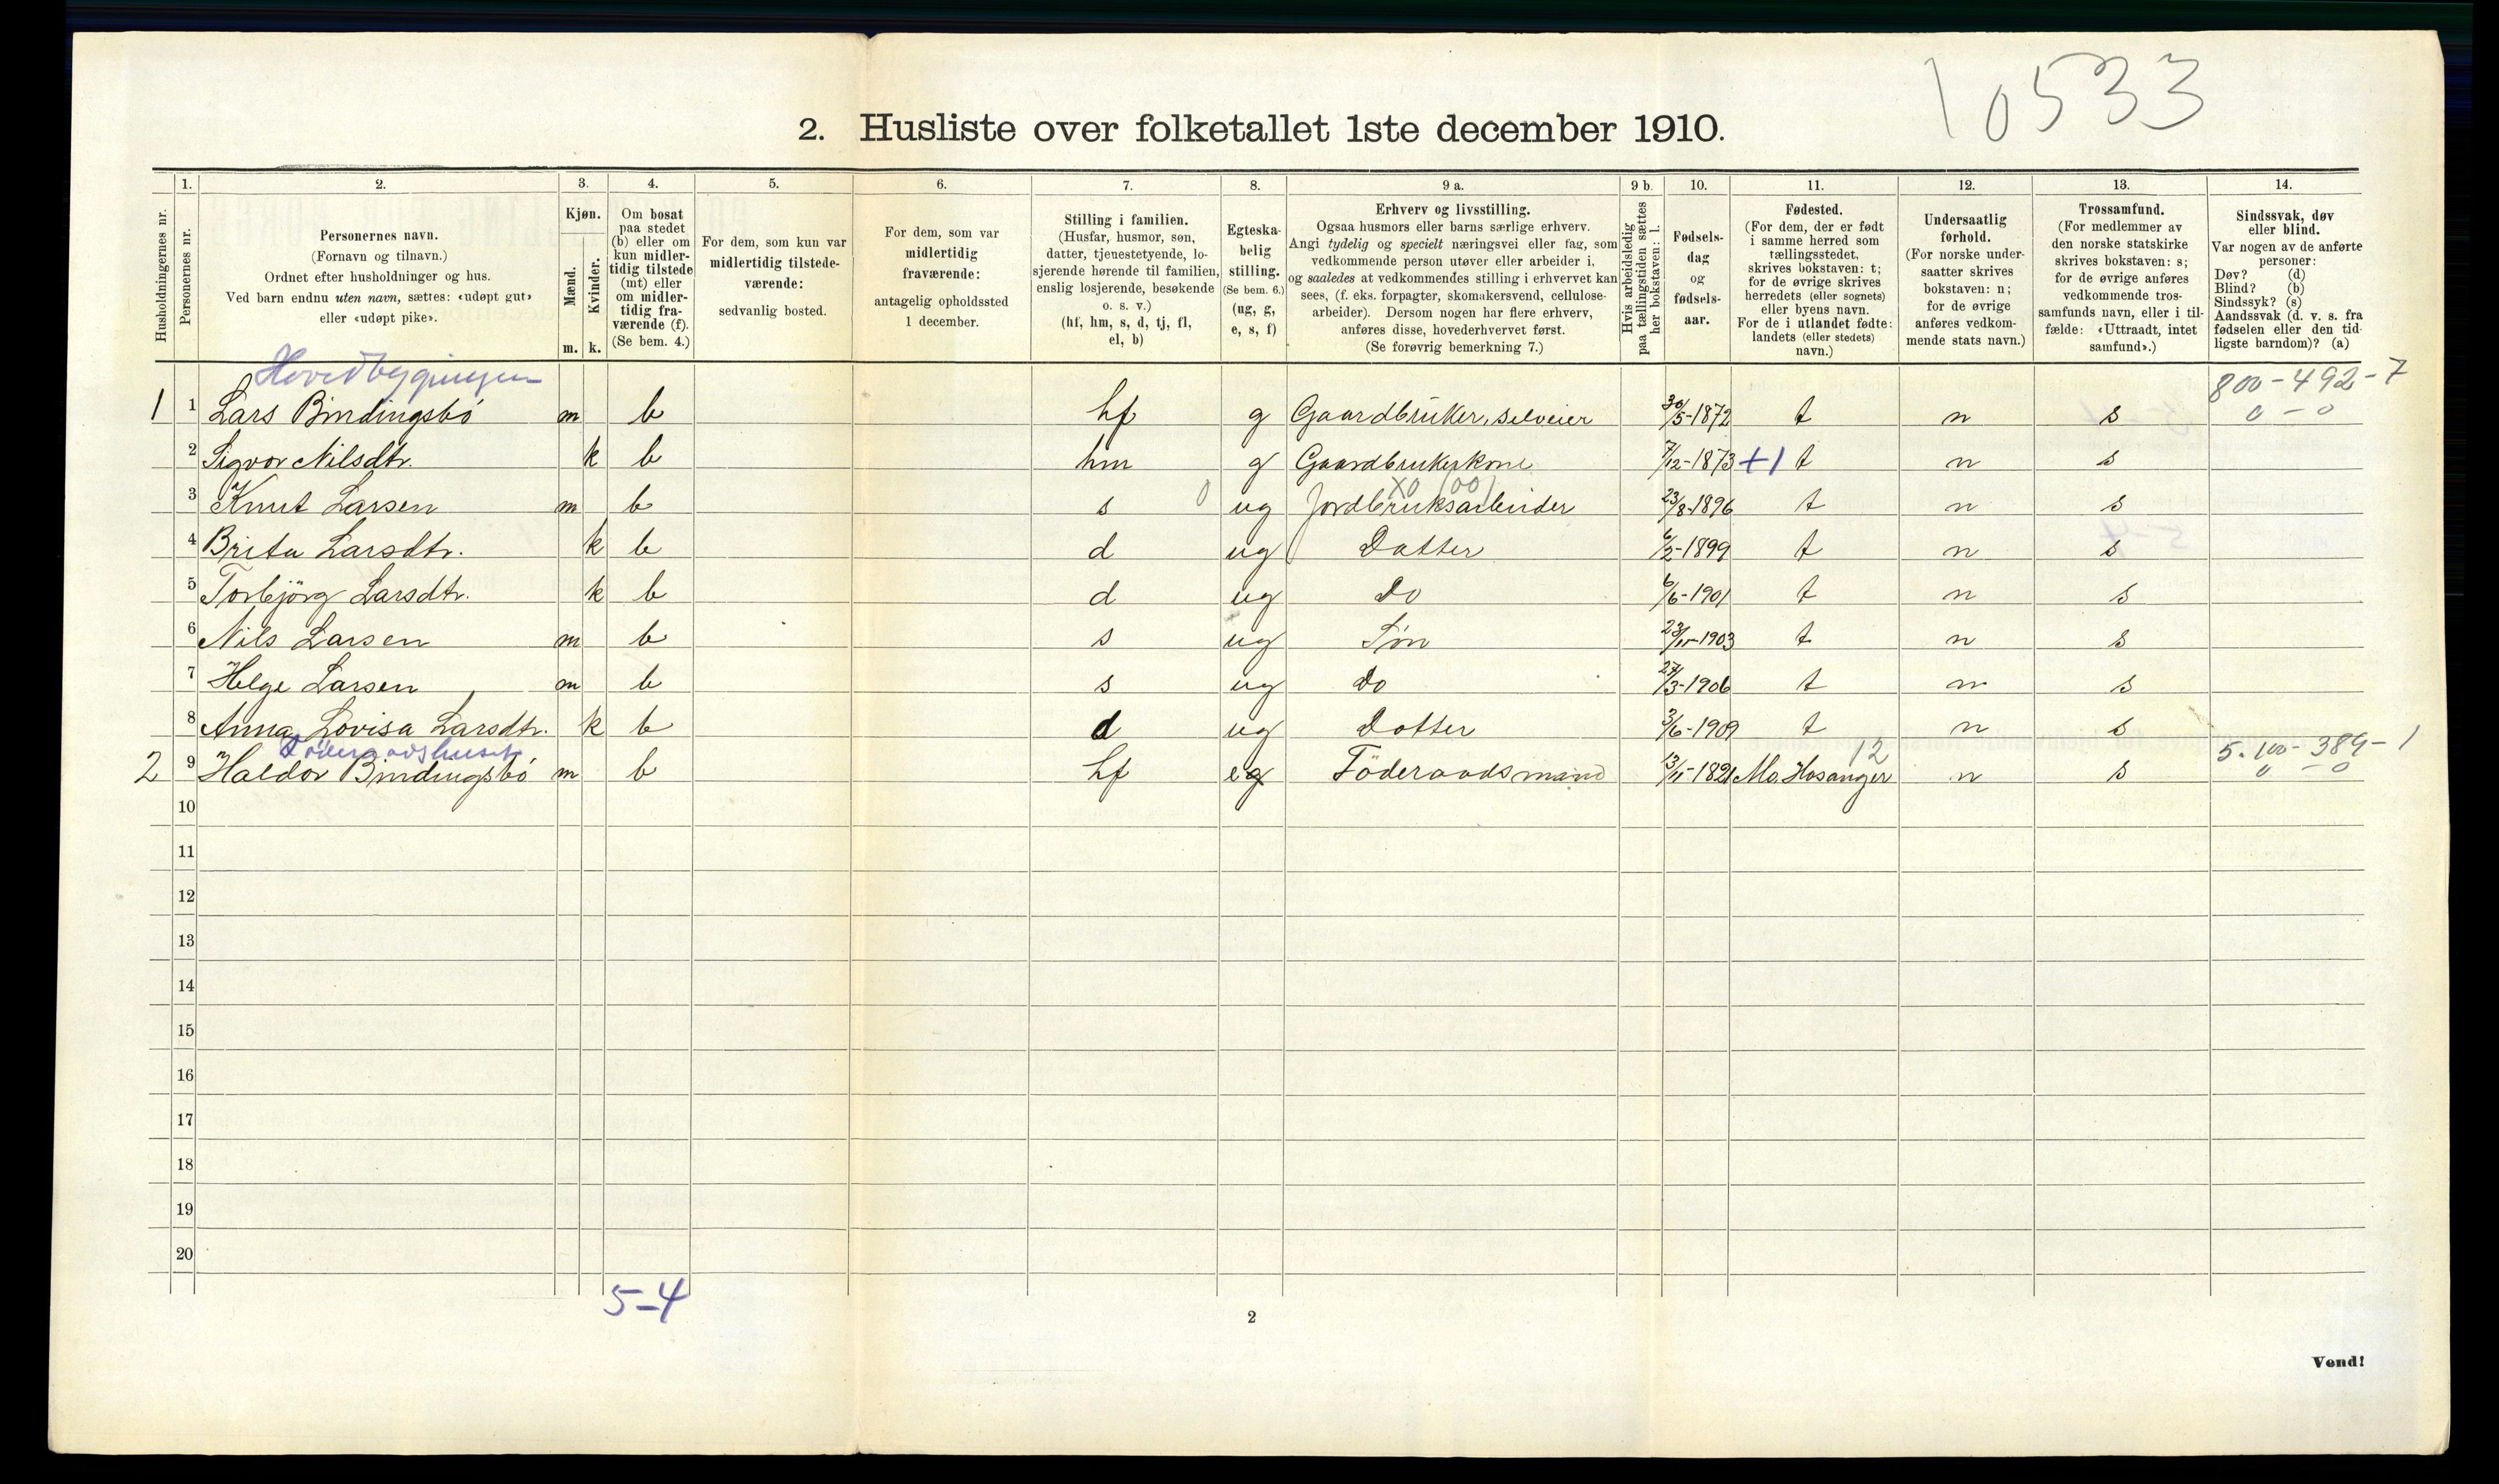 10533
2. Husliste over folketallet 1ste december 1910.
Husholdningernes nr.
1.
Personernes nr.
2.
Personernes navn.
(Fornavn og tilnavn.)
Ordnet efter husholdninger og hus.
Ved barn endnu uten navn, sættes: «udøpt gut»
eller «udøpt pike».
3.
Kjøn.
Mænd.
Kvinder.
m. k.
4.
Om bosat
paa stedet
(b) eller om
kun midler-
tidig tilstede
(mt) eller
om midler-
tidig fra-
værende (f).
(Se bem. 4.)
5.
For dem, som kun var
midlertidig tilstede-
værende:
sedvanlig bosted.
6.
For dem, som var
midlertidig
fraværende:
antagelig opholdssted
1 december.
7.
Stilling i familien.
(Husfar, husmor, søn,
datter, tjenestetyende, lo-
sjerende hørende til familien,
enslig losjerende, besøkende
o. s. v.)
(hf, hm, s, d, tj, fl,
el, b)
8.
Egteska-
belig
stilling.
(Se bem. 6.)
(ug, g,
e, s, f)
9 a.
Erhverv og livsstilling.
Ogsaa husmors eller barns særlige erhverv.
Angi tydelig og specielt næringsvei eller fag, som
vedkommende person utøver eller arbeider i,
og saaledes at vedkommendes stilling i erhvervet kan
sees, (f. eks. forpagter, skomakersvend, cellulose-
arbeider). Dersom nogen har flere erhverv,
anføres disse, hovederhvervet først.
(Se forøvrig bemerkning 7.)
9 b.
Hvis arbeidsledig
paa tællingstiden sættes
her bokstaven: l.
10.
Fødsels-
dag
og
fødsels-
aar.
11.
Fødested.
(For dem, der er født
i samme herred som
tællingsstedet,
skrives bokstaven: t;
for de øvrige skrives
herredets (eller sognets)
eller byens navn.
For de i utlandet fødte:
landets (eller stedets)
navn.)
12.
Undersaatlig
forhold.
(For norske under-
saatter skrives
bokstaven: n;
for de øvrige
anføres vedkom-
mende stats navn.)
13.
Trossamfund.
(For medlemmer av
den norske statskirke
skrives bokstaven: s;
for de øvrige anføres
vedkommende tros-
samfunds navn, eller i til-
fælde: «Uttraadt, intet
samfund».)
14.
Sindssvak, døv
eller blind.
Var nogen av de anførte
personer:
Døv? (d)
Blind? (b)
Sindssyk? (s)
Aandssvak (d. v. s. fra
fødselen eller den tid-
ligste barndom)? (a)
Hovedbygningen
800-492-7
0-0
1 1 Lars Bindingsbö m b hf g Gaardbruker, selveier 30/5-1872 t n s
2 Sigvor Nilsdtr. k b hm g Gaardbrukerkone 7/12-1873 +1 t n s
X0 100
3 Knut Larsen m b s 0 ug Jordbruksarbeider 23/8-1896 t n s
4 Brita Larsdtr. k b d ug Datter 6/2-1899 t n s
5 Torbjörg Larsdtr. k b d ug Do 6/6-1901 t n s
6 Nils Larsen m b s ug Sön 23/11-1903 t n s
7 Helge Larsen m b s ug Do 27/3-1906 t n s
8 Anna Lovisa Larsdtr. k b d ug Dotter 3/6-1909 t n s
Föderaadshuset
12
5.100-389-1
0-0
2 9 Haldor Bindingsbö m b hf eg Föderaadsmand 13/11-1821 Mo. Hosanger n s
10
11
12
13
14
15
16
17
18
19
20
5-4
2
Vend!